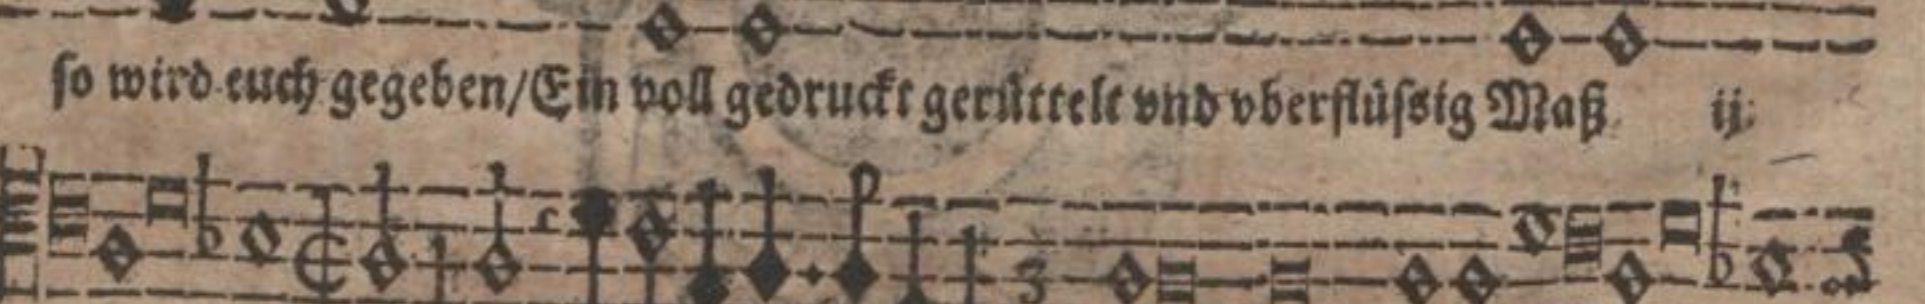 so wird euch gegeben/Ein voll gedruckt gerüttelt vnd vberflüssig Maß ij:
3